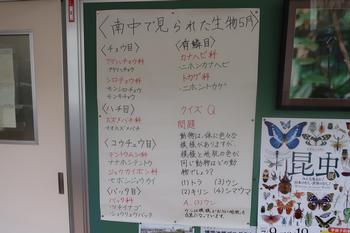 〈南中で見られた生物5月〉
〈チョウ目〉
アゲハチョウ科
アゲハチョウ
シロチョウ科
モンシロチョウ
モンキチョウ
〈ハチ目〉
スズメバチ科
〈コウチュウ目〉
テントウムシ科
ナナホシテントウ
ジョウカイボン科
セボシジョウカイ
〈バッタ目〉
バッタ科
ツチイナゴ
ショウリョウバッタ
〈有鱗目〉
カナヘビ科
ニホンカナヘビ
トカゲ科
ニホントカゲ
クイズ Q
問題
動物は、体に色々な
模様がありますが、
模様と地肌の色が
同じ動物はどの動
物でしょう?
(1)トラ (3)ウシ
(2)キリン (4)シマウマ
A.(3)ウシ
昆虫